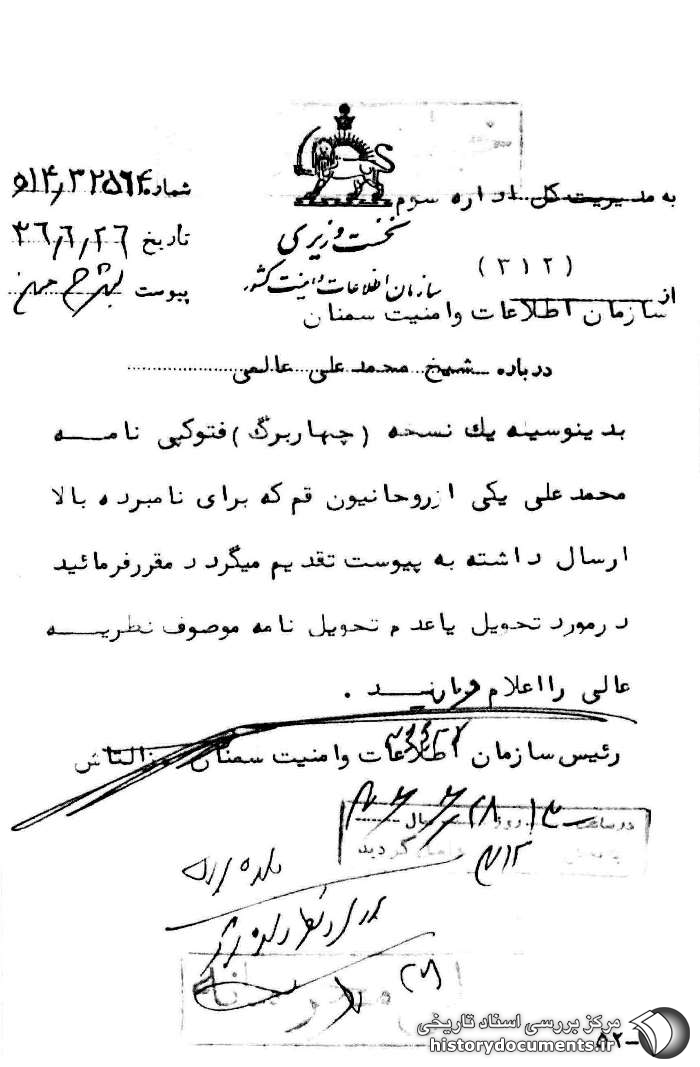 به مدیریت کل اداره سوم
شماره ۵۱۴٫۳۲۵۶۴
نخست وزیری
تاریخ ۳۶٫۶٫۲۶
سازمان اطلاعات و امنیت کشور
(۳۱۲)
پیوست بشرح متن
از سازمان اطلاعات وامنیت سمنان
درباره شیخ محمد علی عالمی
بدینوسیله یك نسخه (چهاربرگ) فتوکپی نامه
محمدعلی یکی ازروحانیون قم که برای نامبرده بالا
ارسال داشته به پیوست تقدیم میگردد مقررفرمائید
درمورد تحویل یاعدم تحویل نامه موصوف نظریه
عالی را اعلام فرمایند .
رئیس سازمان اطلاعات وامنیت سمنان
در ساعت روز سال
گردید
محرمانه
۵۲-
مرکز بررسی اسناد تاریخی
historydocuments.ir